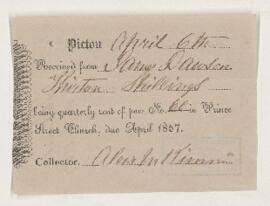 Pictou April 6th
Received from James Dawson
Thirteen Shillings
being quarterly rent of pew No. 66 in Prince
Street Church, due April 1857.
Collector,